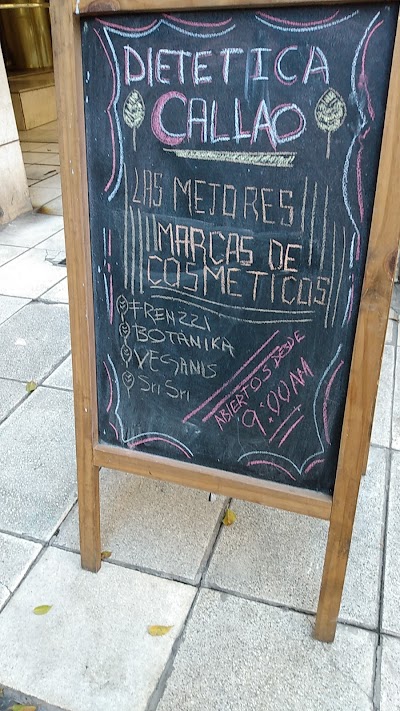 DIETETICA
CALLAO
LAS MEJORES
MARCAS DE
COSMETICOS
FRENZZI
BOTANIKA
VEGANIS
Sri Sri
ABIERTOS DESDE
9:00 AM